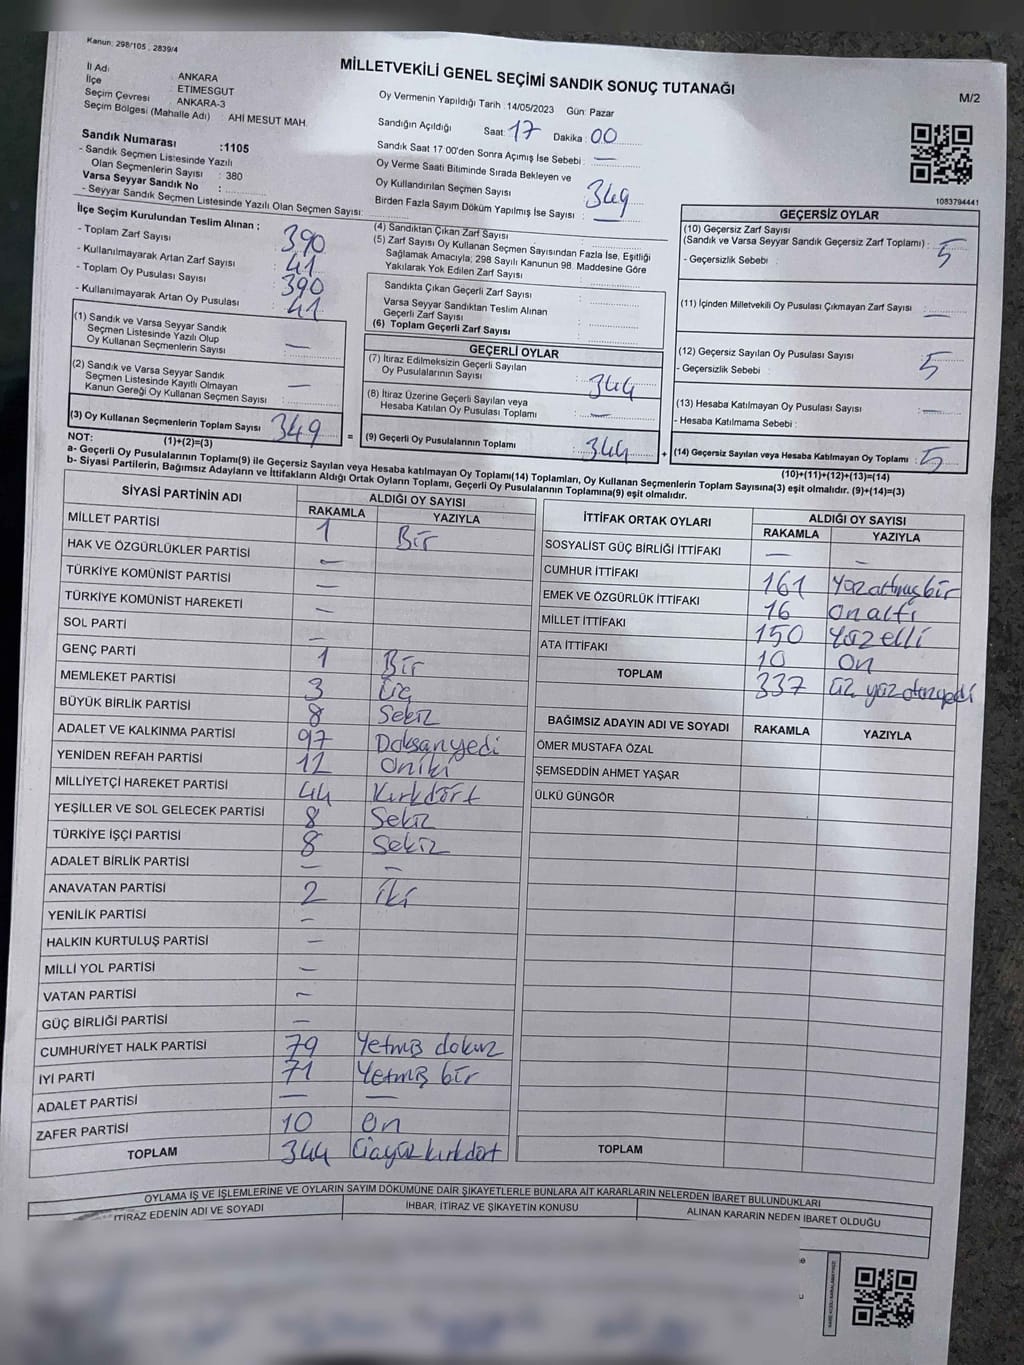 Kanun: 298/105 , 2839/4
MİLLETVEKİLİ GENEL SEÇİMİ SANDIK SONUÇ TUTANAĞI
M/2
İl Adı : ANKARA
İlçe : ETIMESGUT
Seçim Çevresi : ANKARA-3
Seçim Bölgesi (Mahalle Adı) : AHİ MESUT MAH.
Oy Vermenin Yapıldığı Tarih : 14/05/2023 Gün: Pazar
Sandığın Açıldığı Saat: 17 Dakika : 00
Sandık Saat 17 00'den Sonra Açımış İse Sebebi : —
Oy Verme Saati Bitiminde Sırada Bekleyen ve
Oy Kullandırılan Seçmen Sayısı 349
Birden Fazla Sayım Döküm Yapılmış İse Sayısı : —
Sandık Numarası :1105
- Sandık Seçmen Listesinde Yazılı
Olan Seçmenlerin Sayısı : 380
Varsa Seyyar Sandık No :
- Seyyar Sandık Seçmen Listesinde Yazılı Olan Seçmen Sayısı:
1083794441
İlçe Seçim Kurulundan Teslim Alınan ;
- Toplam Zarf Sayısı : 390
- Kullanılmayarak Artan Zarf Sayısı : 41
- Toplam Oy Pusulası Sayısı : 390
- Kullanılmayarak Artan Oy Pusulası : 41
(1) Sandık ve Varsa Seyyar Sandık
Seçmen Listesinde Yazılı Olup
Oy Kullanan Seçmenlerin Sayısı : —
(2) Sandık ve Varsa Seyyar Sandık
Seçmen Listesinde Kayıtlı Olmayan
Kanun Gereği Oy Kullanan Seçmen Sayısı : —
(3) Oy Kullanan Seçmenlerin Toplam Sayısı 349 =
(1)+(2)=(3)
(4) Sandıktan Çıkan Zarf Sayısı :
(5) Zarf Sayısı Oy Kullanan Seçmen Sayısından Fazla İse, Eşitliği
Sağlamak Amacıyla; 298 Sayılı Kanunun 98. Maddesine Göre
Yakılarak Yok Edilen Zarf Sayısı :
Sandıkta Çıkan Geçerli Zarf Sayısı :
Varsa Seyyar Sandıktan Teslim Alınan
Geçerli Zarf Sayısı :
(6) Toplam Geçerli Zarf Sayısı :
GEÇERLİ OYLAR
(7) İtiraz Edilmeksizin Geçerli Sayılan
Oy Pusulalarının Sayısı : 344
(8) İtiraz Üzerine Geçerli Sayılan veya
Hesaba Katılan Oy Pusulası Toplamı : —
(9) Geçerli Oy Pusulalarının Toplamı : 344 +
GEÇERSİZ OYLAR
(10) Geçersiz Zarf Sayısı
(Sandık ve Varsa Seyyar Sandık Geçersiz Zarf Toplamı) : 5
- Geçersizlik Sebebi :
(11) İçinden Milletvekili Oy Pusulası Çıkmayan Zarf Sayısı : —
(12) Geçersiz Sayılan Oy Pusulası Sayısı : 5
- Geçersizlik Sebebi :
(13) Hesaba Katılmayan Oy Pusulası Sayısı : —
- Hesaba Katılmama Sebebi :
(14) Geçersiz Sayılan veya Hesaba Katılmayan Oy Toplamı : 5
(10)+(11)+(12)+(13)=(14)
NOT:
a- Geçerli Oy Pusulalarının Toplamı(9) ile Geçersiz Sayılan veya Hesaba katılmayan Oy Toplamı(14) Toplamları, Oy Kullanan Seçmenlerin Toplam Sayısına(3) eşit olmalıdır. (9)+(14)=(3)
b- Siyasi Partilerin, Bağımsız Adayların ve İttifakların Aldığı Ortak Oyların Toplamı, Geçerli Oy Pusulalarının Toplamına(9) eşit olmalıdır.
SİYASİ PARTİNİN ADI ALDIĞI OY SAYISI
RAKAMLA YAZIYLA
MİLLET PARTİSİ 1 Bir
HAK VE ÖZGÜRLÜKLER PARTİSİ —
TÜRKİYE KOMÜNİST PARTİSİ —
TÜRKİYE KOMÜNİST HAREKETİ —
SOL PARTİ —
GENÇ PARTİ 1 Bir
MEMLEKET PARTİSİ 3 Üç
BÜYÜK BİRLİK PARTİSİ 8 Sekiz
ADALET VE KALKINMA PARTİSİ 97 Doksanyedi
YENİDEN REFAH PARTİSİ 12 Oniki
MİLLİYETÇİ HAREKET PARTİSİ 44 Kırkdört
YEŞİLLER VE SOL GELECEK PARTİSİ 8 Sekiz
TÜRKİYE İŞÇİ PARTİSİ 8 Sekiz
ADALET BİRLİK PARTİSİ — —
ANAVATAN PARTİSİ 2 İki
YENİLİK PARTİSİ —
HALKIN KURTULUŞ PARTİSİ —
MİLLİ YOL PARTİSİ —
VATAN PARTİSİ —
GÜÇ BİRLİĞİ PARTİSİ —
CUMHURİYET HALK PARTİSİ 79 Yetmiş dokuz
İYİ PARTİ 71 Yetmiş bir
ADALET PARTİSİ — —
ZAFER PARTİSİ 10 On
TOPLAM 344 Üçyüzkırkdört
İTTİFAK ORTAK OYLARI ALDIĞI OY SAYISI
RAKAMLA YAZIYLA
SOSYALİST GÜÇ BİRLİĞİ İTTİFAKI — —
CUMHUR İTTİFAKI 161 Yüzaltmışbir
EMEK VE ÖZGÜRLÜK İTTİFAKI 16 Onaltı
MİLLET İTTİFAKI 150 Yüzelli
ATA İTTİFAKI 10 On
TOPLAM 337 Üç yüz otuzyedi
BAĞIMSIZ ADAYIN ADI VE SOYADI RAKAMLA YAZIYLA
ÖMER MUSTAFA ÖZAL
ŞEMSEDDİN AHMET YAŞAR
ÜLKÜ GÜNGÖR
TOPLAM
OYLAMA İŞ VE İŞLEMLERİNE VE OYLARIN SAYIM DÖKÜMÜNE DAİR ŞİKAYETLERLE BUNLARA AİT KARARLARIN NELERDEN İBARET BULUNDUKLARI
İTİRAZ EDENİN ADI VE SOYADI İHBAR, İTİRAZ VE ŞİKAYETİN KONUSU ALINAN KARARIN NEDEN İBARET OLDUĞU